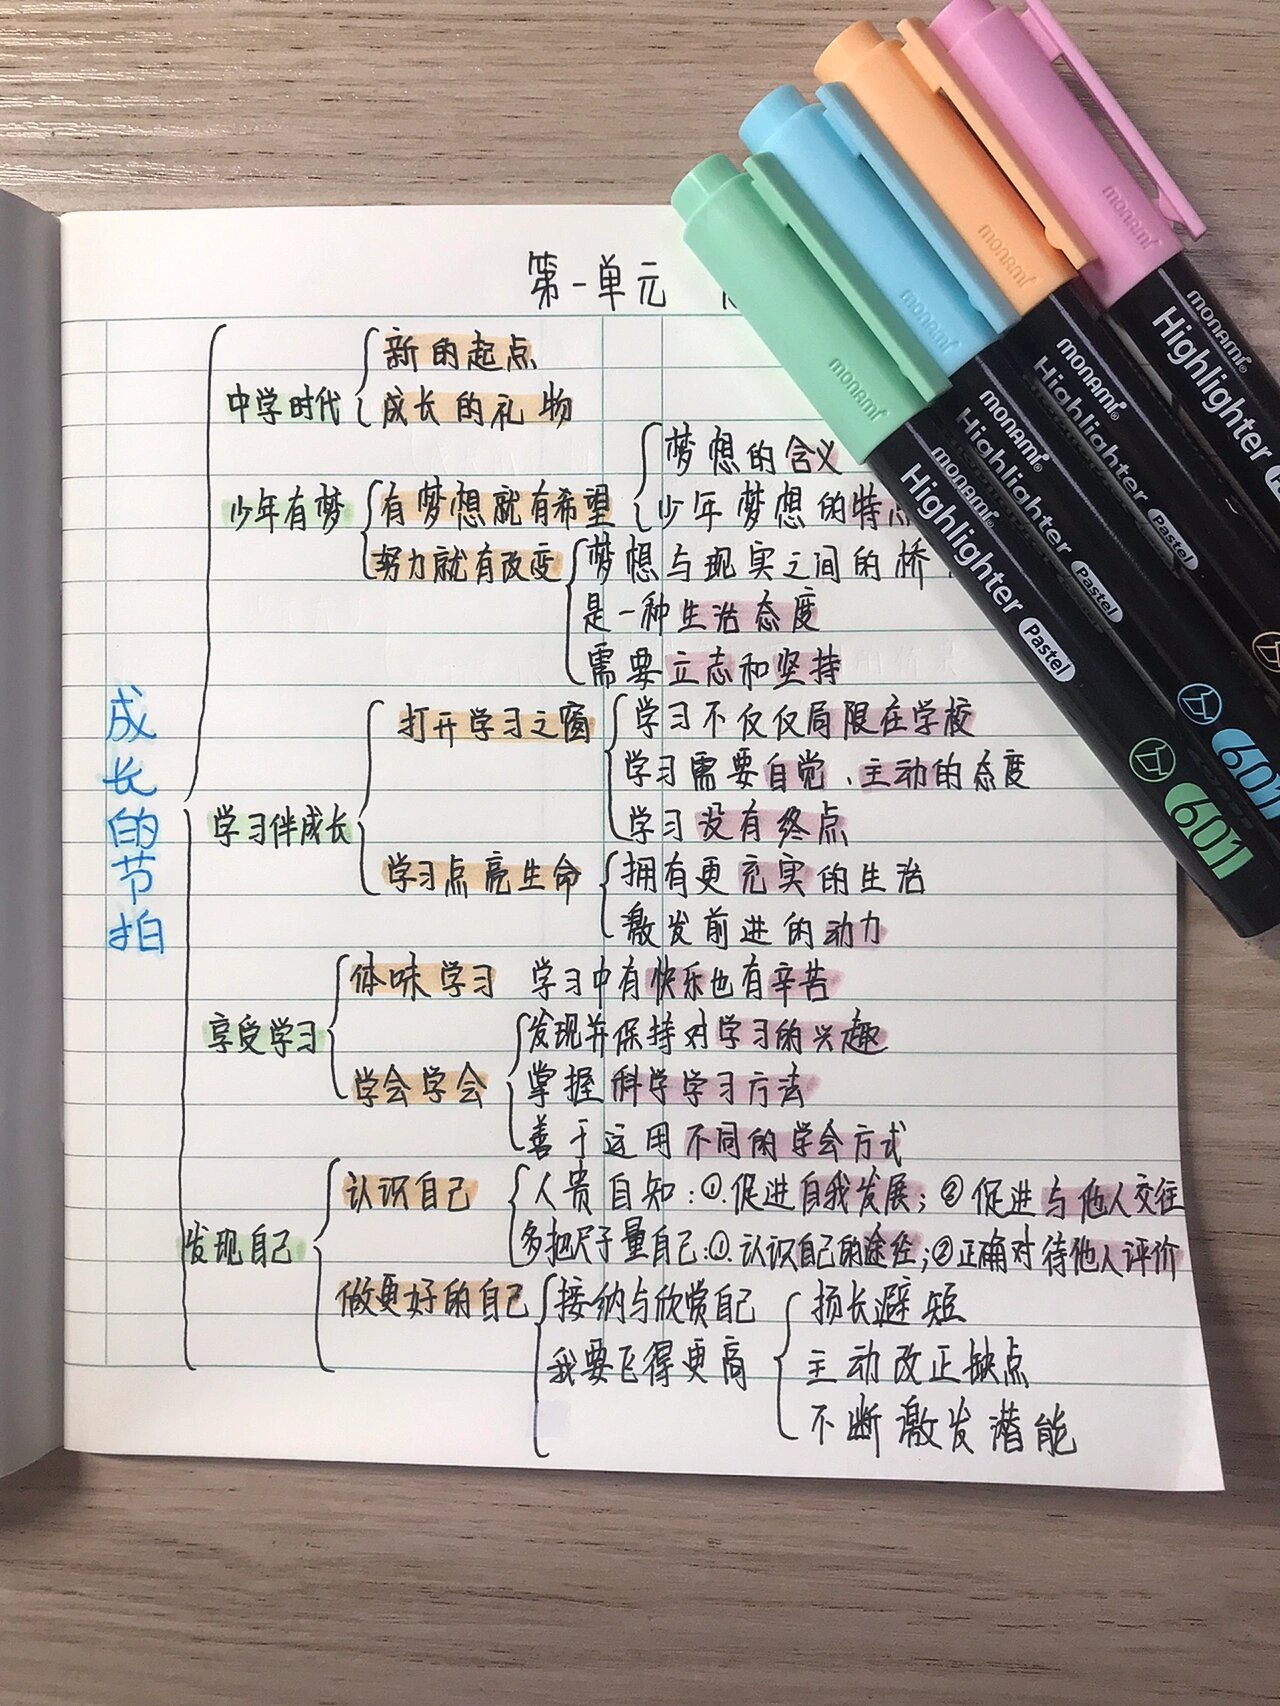 第一单元
中学时代
新的起点
成长的礼物
少年有梦
有梦想就有希望
梦想的含义
少年梦想的特点
努力就有改变
梦想与现实之间的桥
是一种生活态度
需要立志和坚持
成长的节拍
学习伴成长
打开学习之窗
学习不仅仅局限在学校
学习需要自觉、主动的态度
学习没有终点
学习点亮生命
拥有更充实的生活
激发前进的动力
享受学习
体味学习 学习中有快乐也有辛苦
学会学会
发现并保持对学习的兴趣
掌握科学学习方法
善于运用不同的学会方式
发现自己
认识自己
人贵自知:①.促进自我发展;②促进与他人交往
多把尺子量自己:①.认识自己的途径;②正确对待他人评价
做更好的自己
接纳与欣赏自己
我要飞得更高
扬长避短
主动改正缺点
不断激发潜能
monami
monami
monami
monami
monami Highlighter Pastel 6011
monami Highlighter Pastel 6011
monami Highlighter Pastel
monami Highlighter